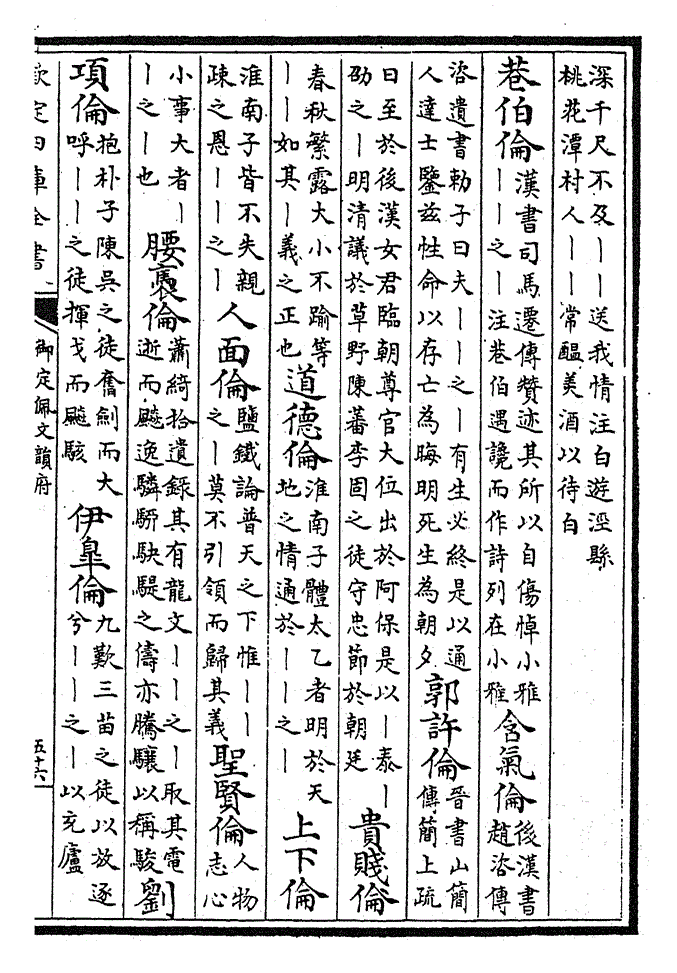 深千尺不及｜｜送我情注白遊涇縣桃花潭村人｜｜常醞美酒以待白
巷伯倫漢書司馬遷傳贊迹其所以自傷悼小雅｜｜之｜注巷伯遇讒而作詩列在小雅含氣倫後漢書趙咨傳
咨遺書勅子曰夫｜｜之｜有生必終是以通人達士鑒兹性命以存亡為晦明死生為朝夕郭許倫晉書山簡傳簡上疏
曰至於後漢女君臨朝尊官大位出於阿保是以｜泰｜劭之｜明清議於草野陳蕃李固之徒守忠節於朝廷貴賤倫
春秋繁露大小不踰等｜｜如其｜義之正也道德倫淮南子體太乙者明於天地之情通於｜｜之｜上下倫
淮南子皆不失親疎之恩｜｜之｜人面倫鹽鐵論普天之下惟｜｜之｜莫不引領而歸其義聖賢倫人物志心
小事大者｜｜之｜也腰褭倫蕭綺拾遺録其有龍文｜｜之｜取其電逝而飈逸驎駬駃騠之儔亦騰驤以稱駿劉
項倫抱朴子陳吳之徒奮劍而大呼｜｜之徒揮戈而飈駭伊臯倫九歎三苗之徒以放逐兮｜｜之｜以充廬
欽定四庫全書
御定佩文韻府
五十六